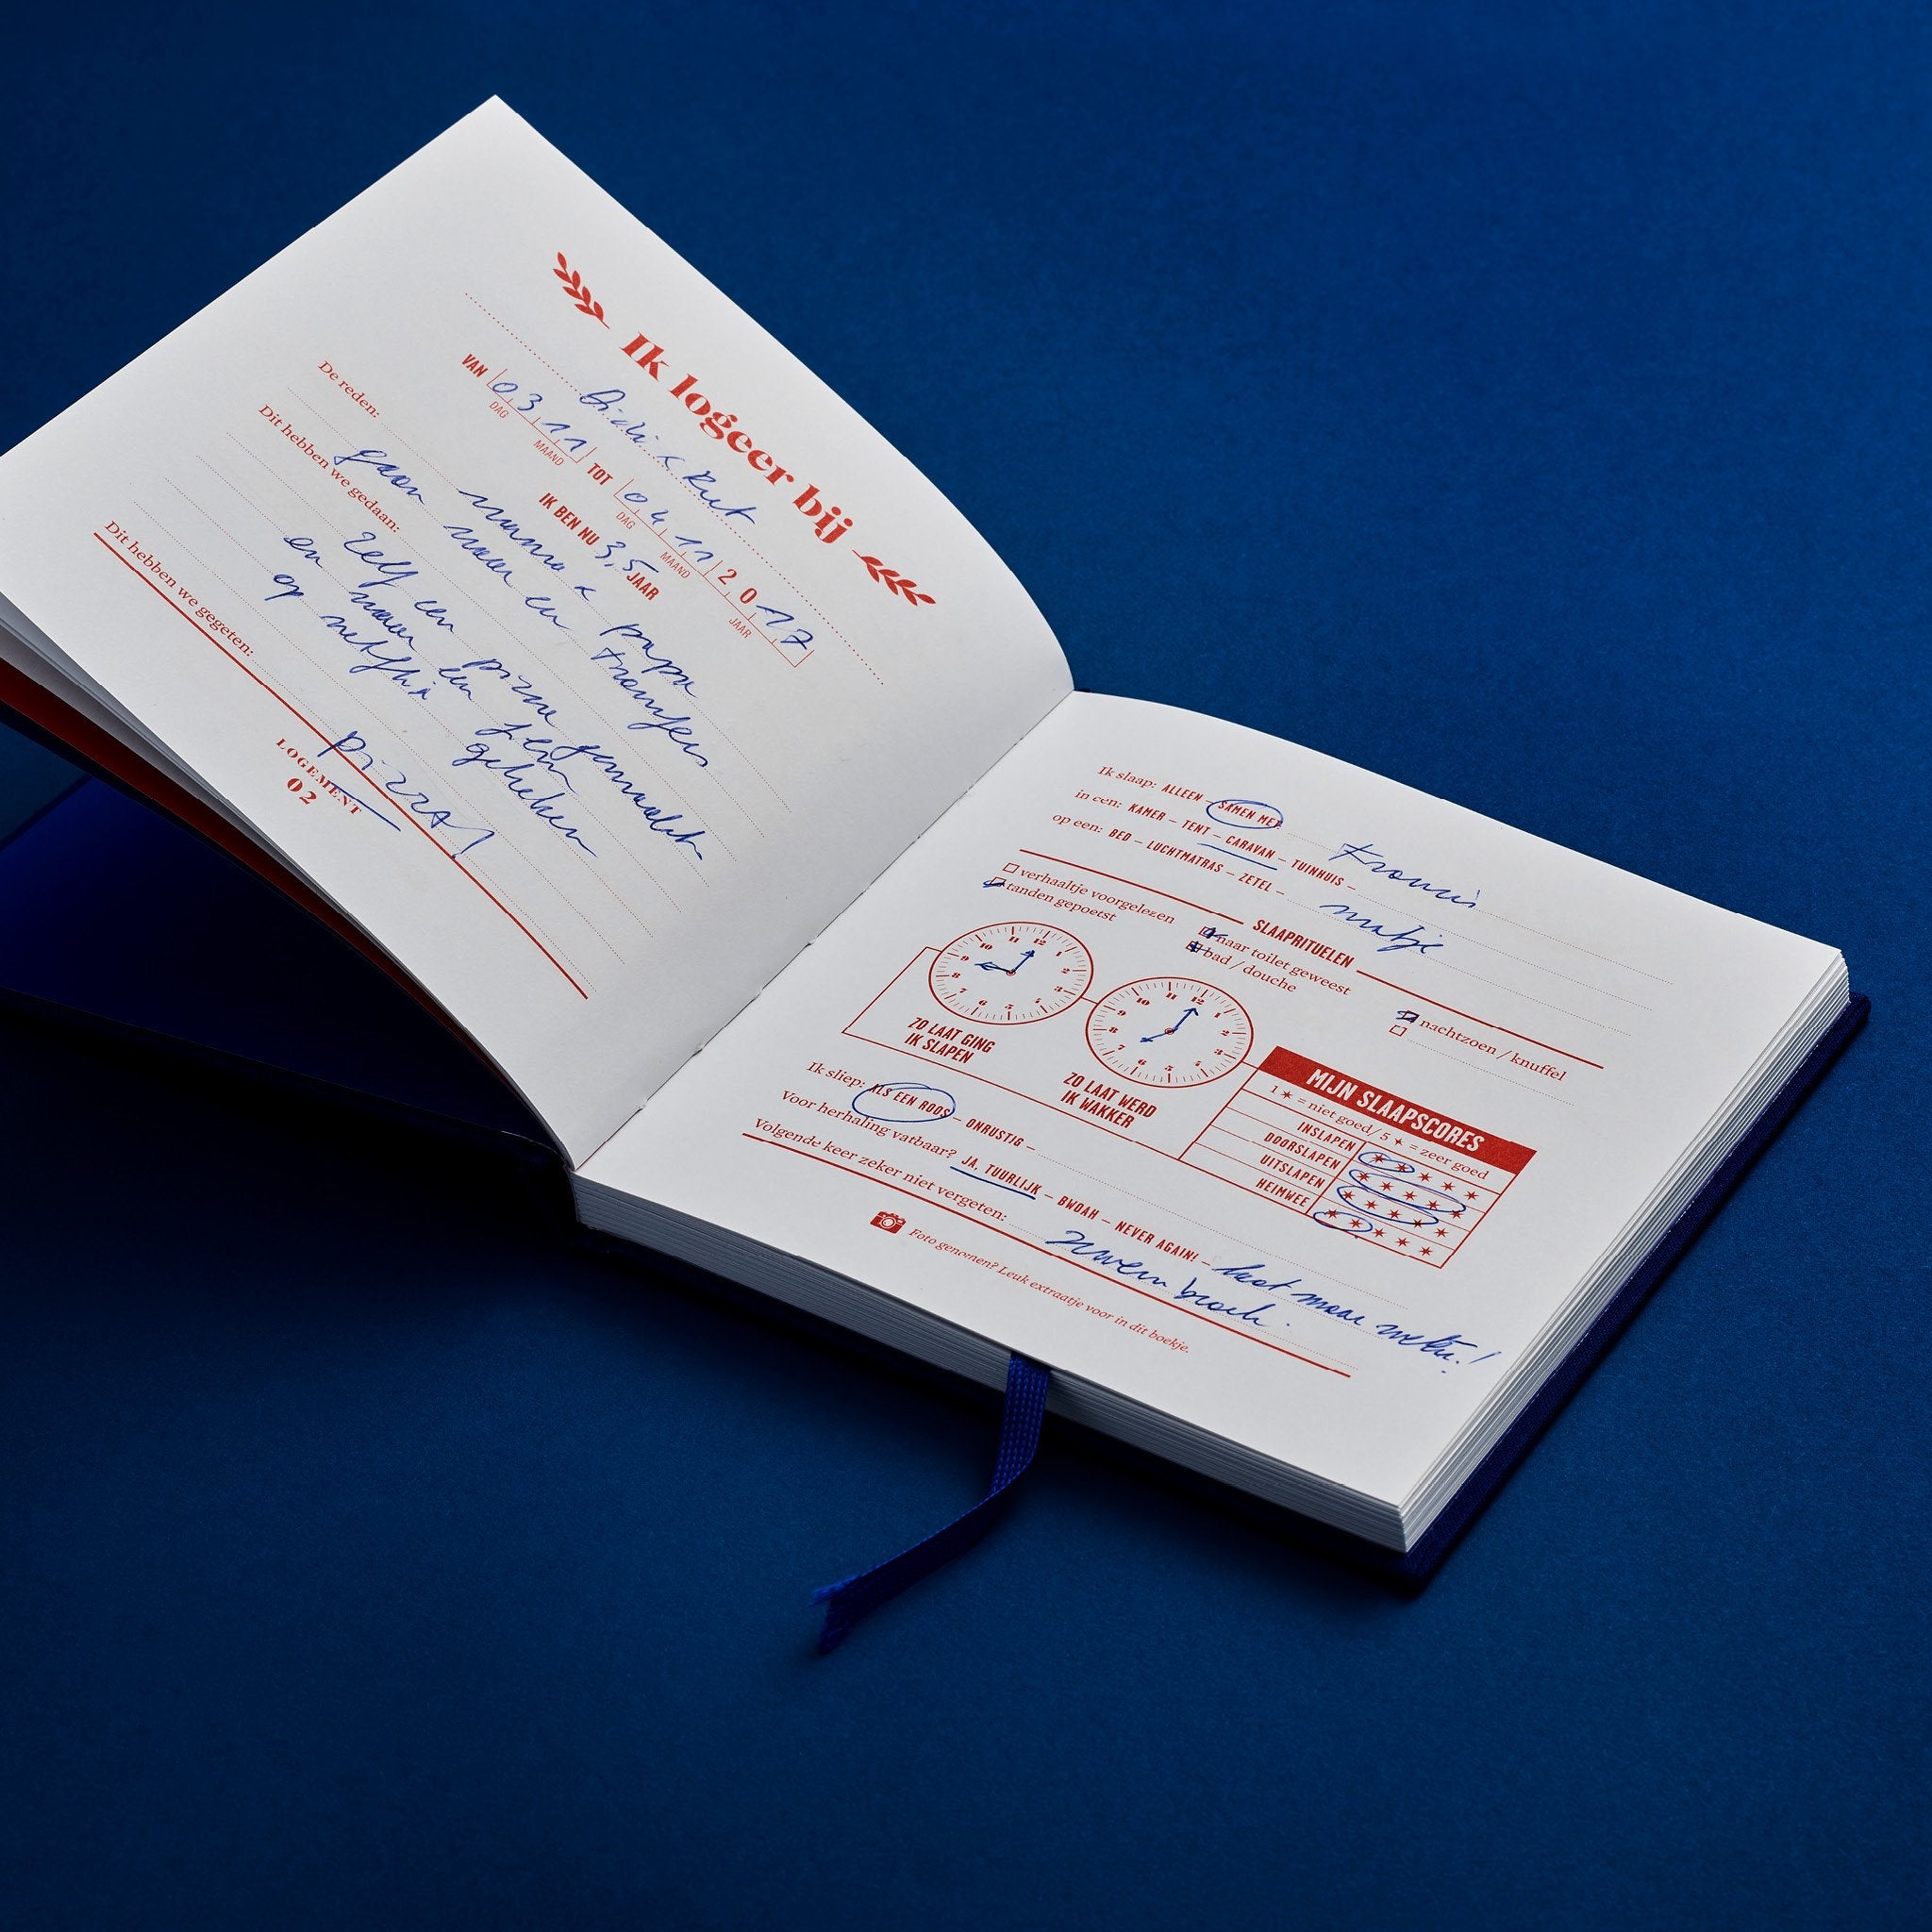 Ik logeer bij
Didi & Rut
VAN 03 11 TOT 04 11 2017
DAG MAAND DAG MAAND JAAR
IK BEN NU 3,5 JAAR
De reden:
mama & papa
gaan naar en
Dit hebben we gedaan:
zelf een pizza gemaakt
en naar een film
op netflix gekeken
Dit hebben we gegeten:
pizza!
LOGEMENT
02
Ik slaap: ALLEEN – SAMEN MET Francis
in een: KAMER – TENT – CARAVAN – TUINHUIS –
op een: BED – LUCHTMATRAS – ZETEL – matje
SLAAPRITUELEN
verhaaltje voorgelezen
tanden gepoetst
naar toilet geweest
bad / douche
nachtzoen / knuffel
10 11 12 1 2 3 4 5 6 7 8 9
ZO LAAT GING
IK SLAPEN
10 11 12 1 2 3 4 5 6 7 8 9
ZO LAAT WERD
IK WAKKER
MIJN SLAAPSCORES
1 ✶ = niet goed / 5 ✶ = zeer goed
INSLAPEN ✶ ✶ ✶ ✶ ✶
DOORSLAPEN ✶ ✶ ✶ ✶ ✶
UITSLAPEN ✶ ✶ ✶ ✶ ✶
HEIMWEE ✶ ✶ ✶ ✶ ✶
Ik sliep: ALS EEN ROOS – ONRUSTIG –
Voor herhaling vatbaar? JA, TUURLIJK – BWOAH – NEVER AGAIN! – laat maar weten!
Volgende keer zeker niet vergeten: zwembroek.
Foto genomen? Leuk extraatje voor in dit boekje.